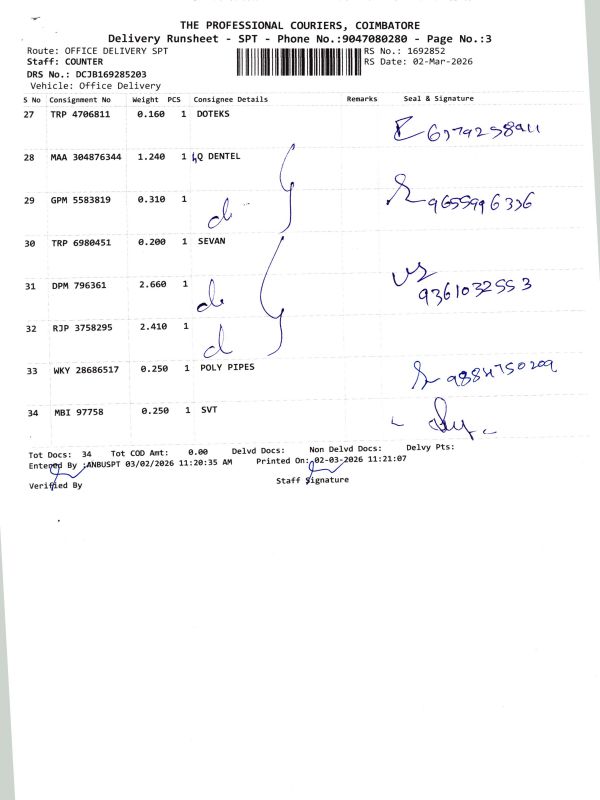 THE PROFESSIONAL COURIERS, COIMBATORE
Delivery Runsheet - SPT - Phone No.:9047080280 - Page No.:3
Route: OFFICE DELIVERY SPT RS No.: 1692852
Staff: COUNTER RS Date: 02-Mar-2026
DRS No.: DCJB169285203
Vehicle: Office Delivery
S No Consignment No Weight PCS Consignee Details Remarks Seal & Signature
27 TRP 4706811 0.160 1 DOTEKS
28 MAA 304876344 1.240 1 LQ DENTEL
29 GPM 5583819 0.310 1 do 9655996336
30 TRP 6980451 0.200 1 SEVAN
31 DPM 796361 2.660 1 do 9361032553
32 RJP 3758295 2.410 1 do
33 WKY 28686517 0.250 1 POLY PIPES 9884750209
34 MBI 97758 0.250 1 SVT
Tot Docs: 34 Tot COD Amt: 0.00 Delvd Docs: Non Delvd Docs: Delvy Pts:
Entered By :ANBUSPT 03/02/2026 11:20:35 AM Printed On: 02-03-2026 11:21:07
Verified By Staff Signature